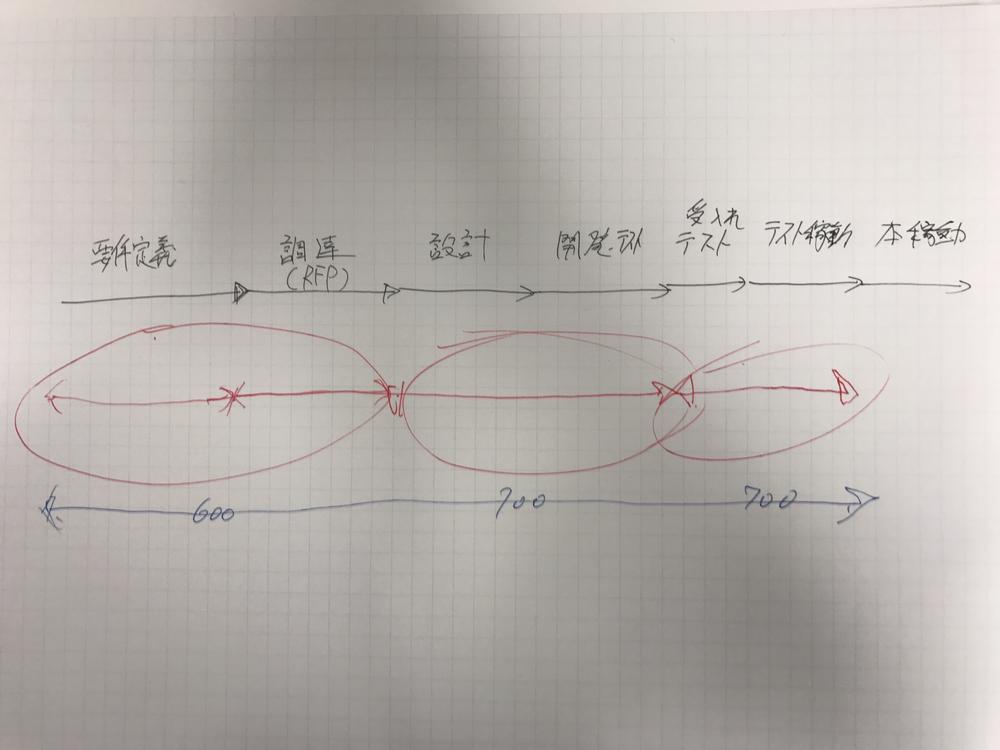 要件定義
調達
(RFP)
設計
開発・テスト
受入れ
テスト
テスト稼動
本稼動
600
700
700